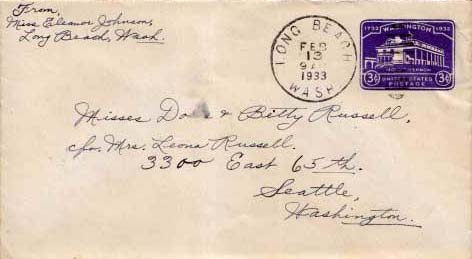 From,
Miss Eleanor Johnson,
Long Beach, Wash.
LONG BEACH
FEB
13
9 AM
1933
WASH
1732 WASHINGTON 1932
MOUNT VERNON
3¢ UNITED STATES 3¢
POSTAGE
Misses & Betty Russell,
c/o. Mrs. Leona Russell.
3300 East 65th.
Seattle,
Washington.